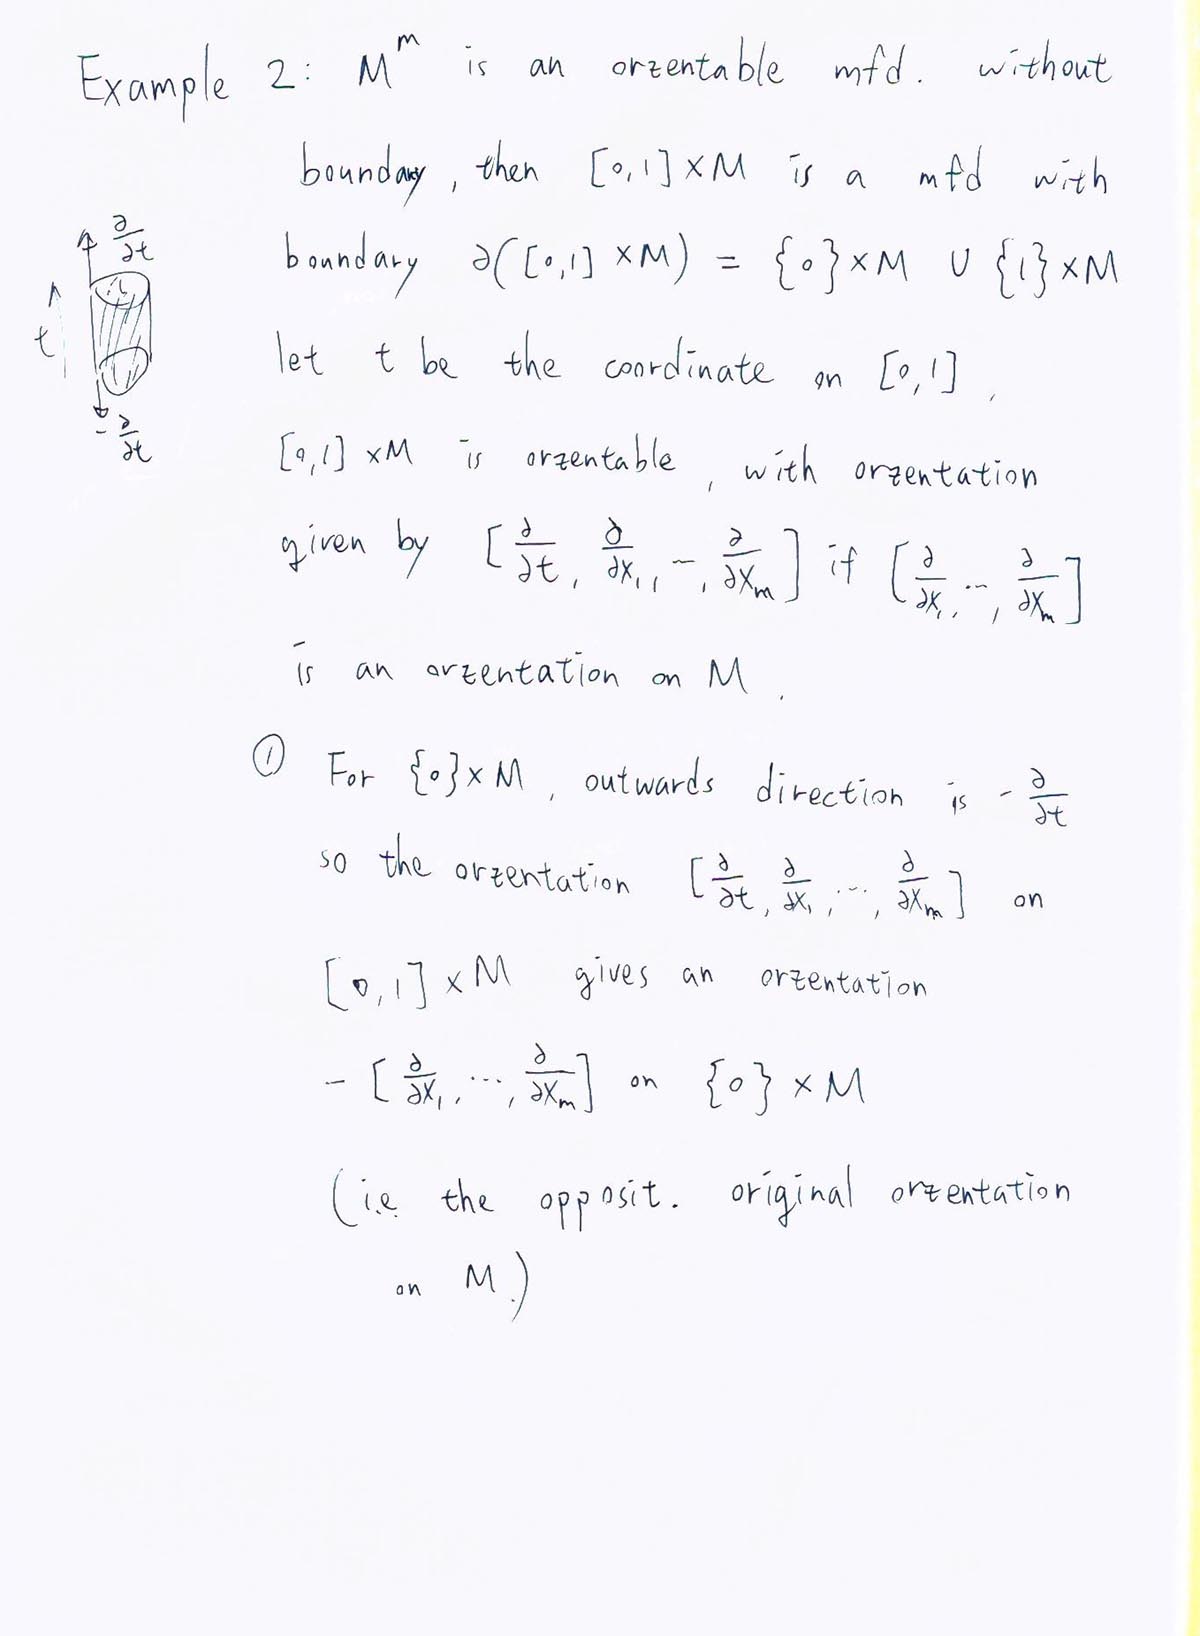 Example 2: M^m is an orientable mfd. without
boundary, then [0,1] × M is a mfd with
boundary ∂([0,1] × M) = {0} × M ∪ {1} × M
let t be the coordinate on [0,1],
[0,1] × M is orientable, with orientation
given by [∂/∂t, ∂/∂x₁, ⋯, ∂/∂xₘ] if [∂/∂x₁, ⋯, ∂/∂xₘ]
is an orientation on M.
∂/∂t
t
-∂/∂t
① For {0} × M, outwards direction is -∂/∂t
so the orientation [∂/∂t, ∂/∂x₁, ⋯, ∂/∂xₘ] on
[0,1] × M gives an orientation
-[∂/∂x₁, ⋯, ∂/∂xₘ] on {0} × M
(i.e. the opposit. original orientation
on M.)